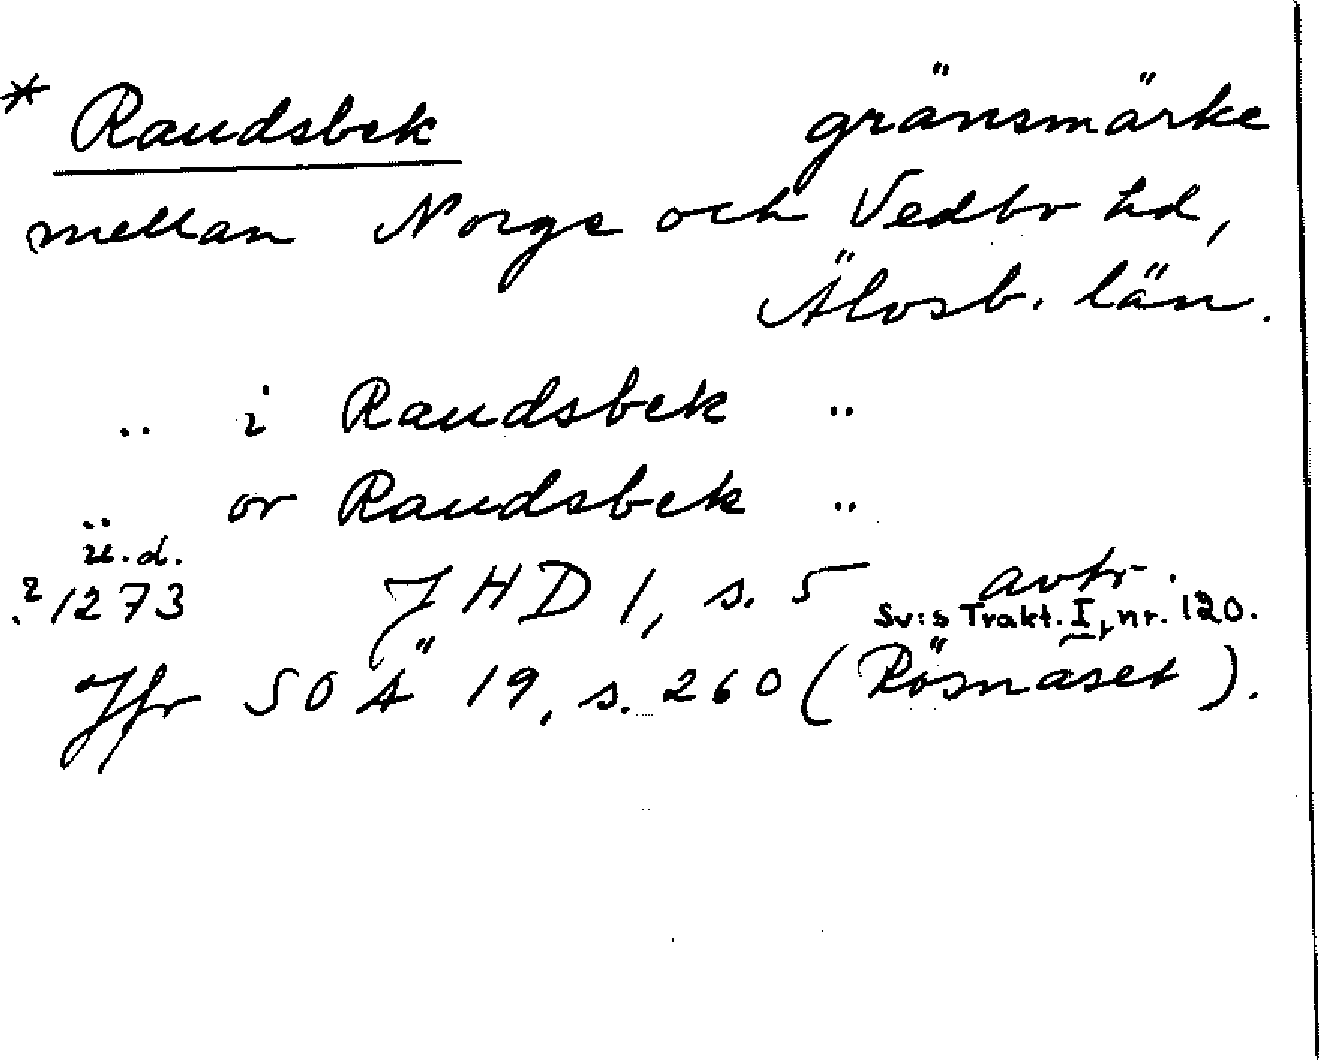 * Raudsbek gränsmärke
mellan Norge och Vedbo hd,
Älvsb. län.
.. i Raudsbek ..
.. or Raudsbek ..
u.d.
?1273 JHD 1, s. 5 avtr.
Sv:s Trakt. I, nr. 120.
Jfr SOÄ 19, s. 260 (Rösnäset).